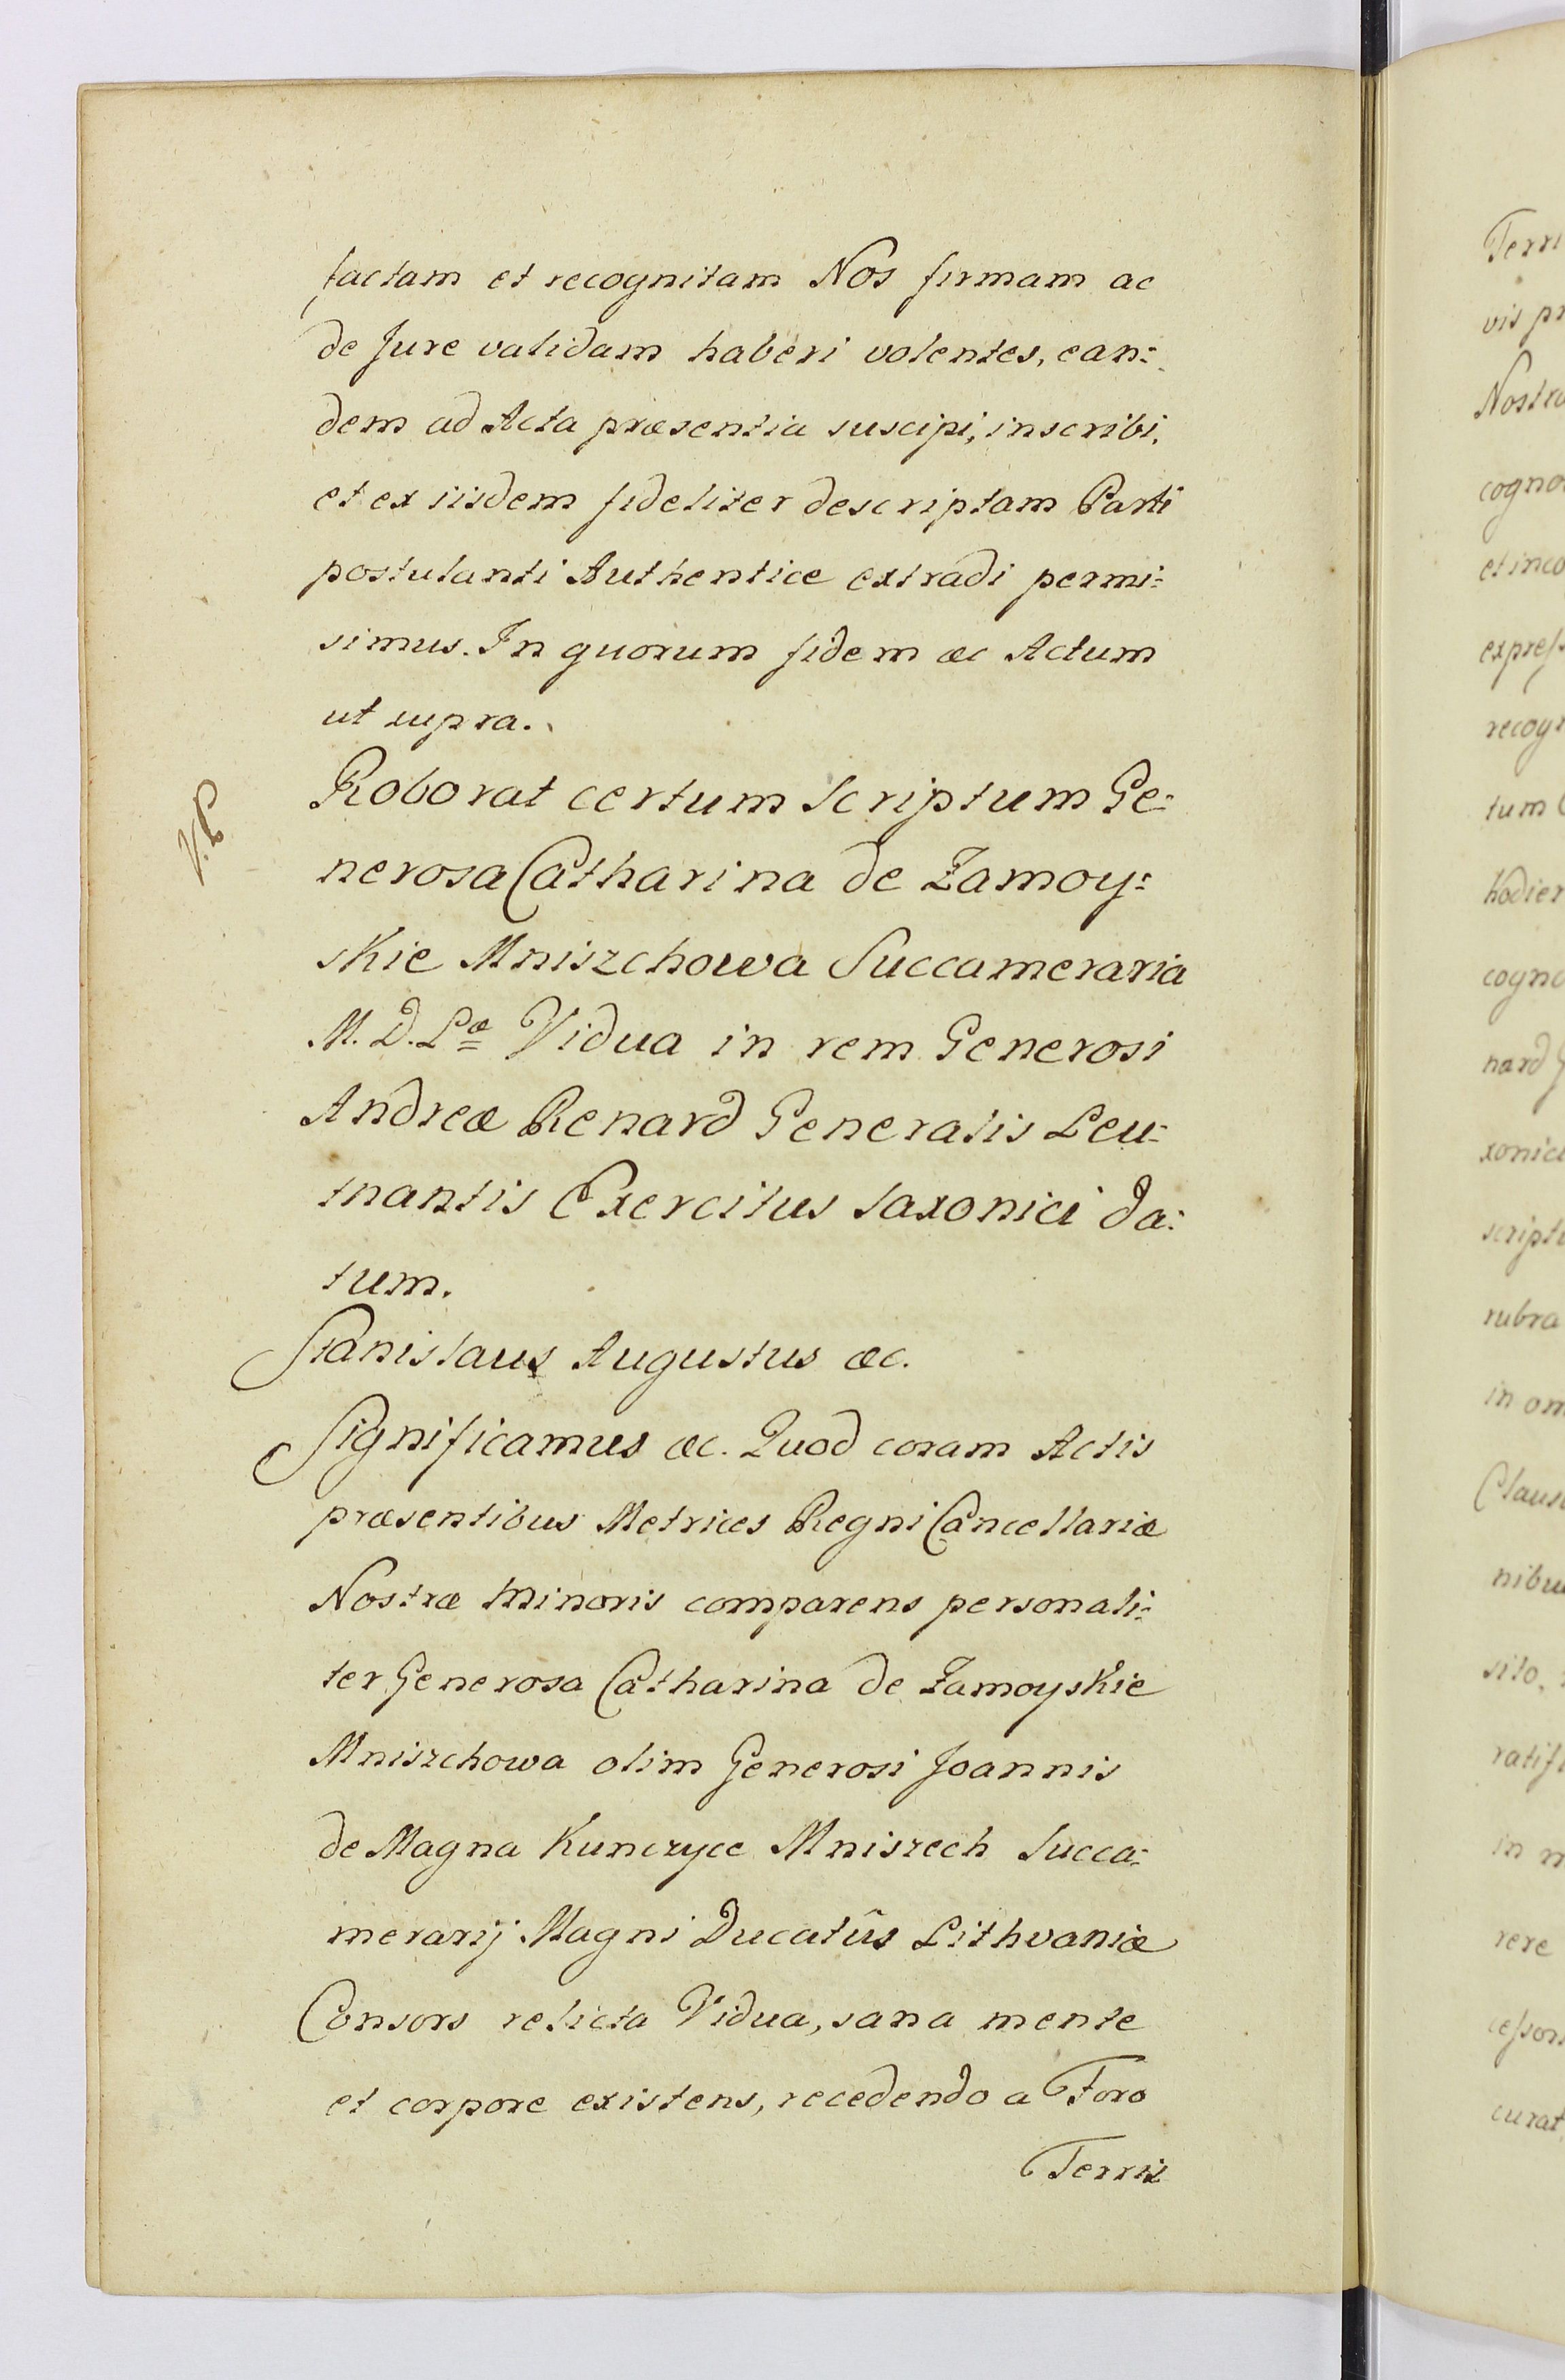 factam et recognitam Nos firmam ac
de Jure validam haberi volentes, ean=
dem ad Acta præsentia suscipi, inscribi,
et ex iisdem fideliter descriptam Parti
postulanti Authentice extradi permi=
simus. In quorum fidem &c Actum
ut supra.
Roborat certum Scriptum Ge=
nerosa Catharina de Zamoy=
skie Mniszchowa Succameraria
M. D. Læ Vidua in rem Generosi
Andreæ Renard Generalis Leu=
tnantis Exercitus Saxonici da=
tum.
Stanislaus Augustus &c.
Significamus &c. Quod coram Actis
præsentibus Metrices Regni Cancellariæ
Nostræ Minoris comparens personali=
ter Generosa Catharina de Zamoyskie
Mniszchowa olim Generosi Joannis
de Magna Kunczyce Mniszech Succa=
merarij Magni Ducatûs Lithvaniæ
Consors relicta Vidua, sana mente
et corpore existens, recedendo a Foro
Terris
Terri
vis pr
Nostra
cogno
et inco
expres
recogn
tum
hodier
cogno
nard G
xonici
scripti
rubra
in om
Claus
nibus
sito,
ratifi
in
rere
cessor
curat